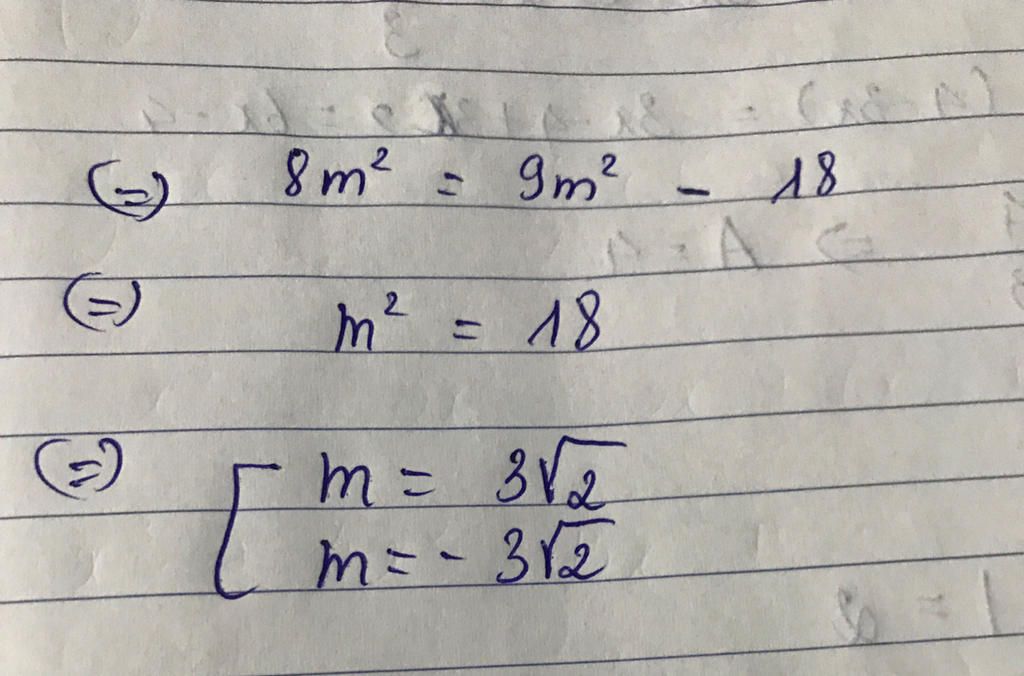 (=) 8m² = 9m² - 18
(=) m² = 18
(=) [ m = 3√2
m = - 3√2